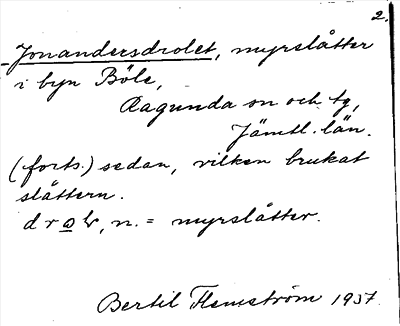 2.
Jonandersdrolet, myrslåtter
i byn Böle,
Ragunda sn och tg,
Jämtl. län.
(forts.) sedan, vilken brukat
slåttern.
n. = myrslåtter.
Bertil Flemström 1937.